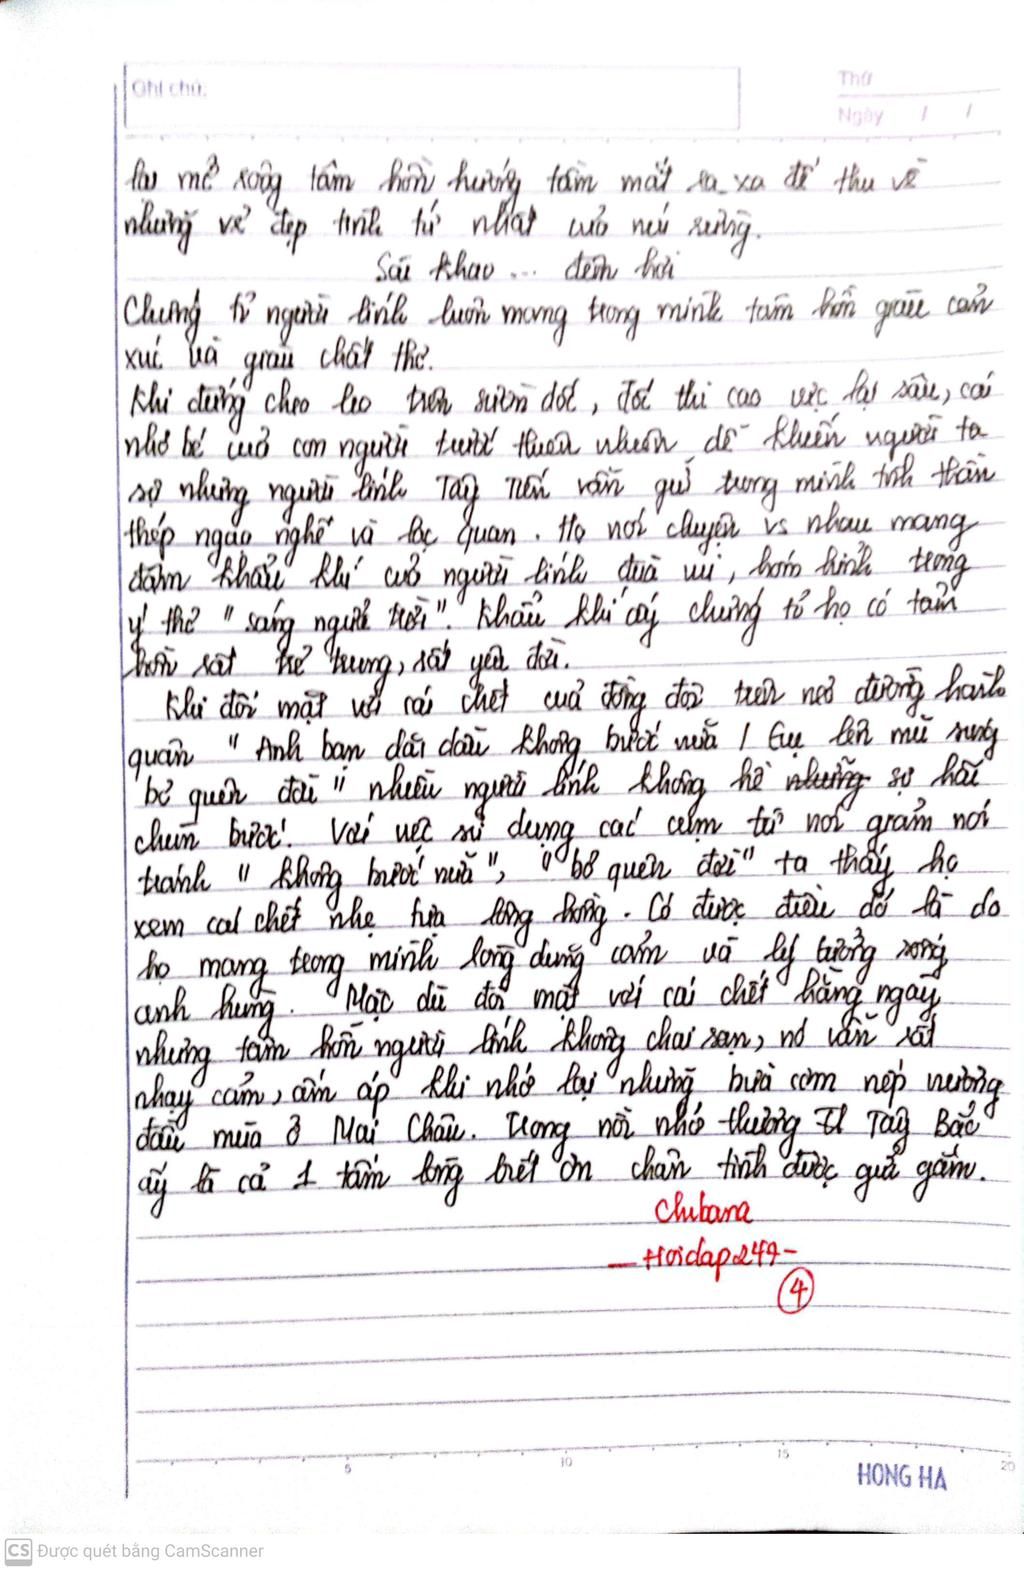 Ghi chú:
Thứ
Ngày / /
lại mở rộng tâm hồn hướng tầm mắt ra xa để thu về
những vẻ đẹp tinh tú nhất của núi rừng.
Sài Khao ... đêm hơi
Chứng tỏ người lính luôn mang trong mình tâm hồn giàu cảm
xúc và giàu chất thơ.
Khi đứng cheo leo trên sườn dốc, dốc thì cao vực lại sâu, cái
nhỏ bé của con người trước thiên nhiên dễ khiến người ta
sợ nhưng người lính Tây Tiến vẫn giữ trong mình tinh thần
thép ngạo nghễ và lạc quan. Họ nói chuyện vs nhau mang
đậm khẩu khí của người lính đùa vui, hóm hỉnh trong
ý thơ "súng ngửi trời". Khẩu khí ấy chứng tỏ họ có tâm
hồn rất trẻ trung, rất yêu đời.
Khi đối mặt với cái chết của đồng đội trên nẻo đường hành
quân "Anh bạn dãi dầu không bước nữa / Gục lên mũ súng
bỏ quên đời" nhiều người lính không hề những sợ hãi
chùn bước! Với việc sử dụng các cụm từ nói giảm nói
tránh "không bước nữa", "bỏ quên đời" ta thấy họ
xem cái chết nhẹ tựa lông hồng. Có được điều đó là do
họ mang trong mình lòng dũng cảm và lý tưởng sống
anh hùng. Mặc dù đối mặt với cái chết hằng ngày
nhưng tâm hồn người lính không chai sạn, nó vẫn rất
nhạy cảm, ấm áp khi nhớ lại những bữa cơm nếp nương
đầu mùa ở Mai Châu. Trong nỗi nhớ thương Tây Bắc
ấy là cả 1 tấm lòng biết ơn chân tình được gửi gắm.
Chibana
- Hoidap247 -
4
5 10 15 20
HONG HA
CS Được quét bằng CamScanner